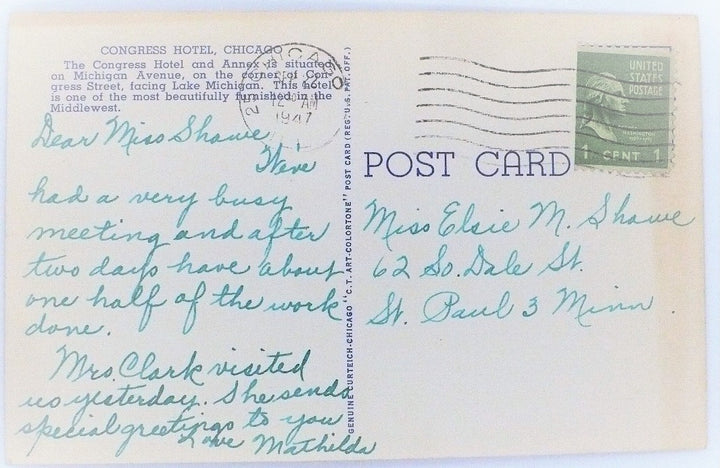 CONGRESS HOTEL, CHICAGO
The Congress Hotel and Annex is situated
on Michigan Avenue, on the corner of Con-
gress Street, facing Lake Michigan. This hotel
is one of the most beautifully furnished in the
Middlewest.
Dear Miss Shawe
We've
had a very busy
meeting and after
two days have about
one half of the work
done.
Mrs. Clark visited
us yesterday. She sends
special greetings to you
Love Mathilda
GENUINE CURTEICH-CHICAGO "C.T. ART-COLORTONE" POST CARD (REG. U.S. PAT. OFF.)
CHICAGO
12 AM
1947
UNITED
STATES
POSTAGE
WASHINGTON
1 CENT 1
POST CARD
Miss Elsie M. Shawe
62 So. Dale St.
St. Paul 3 Minn.